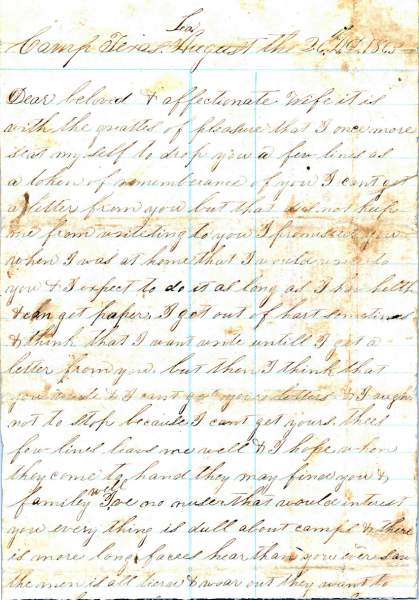 Lea
Camp Texas August the 26th 1865
Dear beloved & affectionate wife it is
with the grattes of pleasure that I once more
seat my self to drop you a few lines as
a token of rememberance of you I cant get
a letter from you but that dos not keep
me from writeing to you I promised you
when I was at home that I would write to
you & I expect to do it as long as I have helth
& can get paper. I get out of hart sometimes
& think that I wont write untill I get a
letter from you but then I think that
you write & I cant get your letters & I aught
not to stop because I cant get yours. thes
few lines leavs me well & I hope when
they come to hand they may find you &
familey well I ve no nuse that would interest
you every thing is dull about camps & there
is more long faces hear than you ever saw
the men is all &  wore out they want to